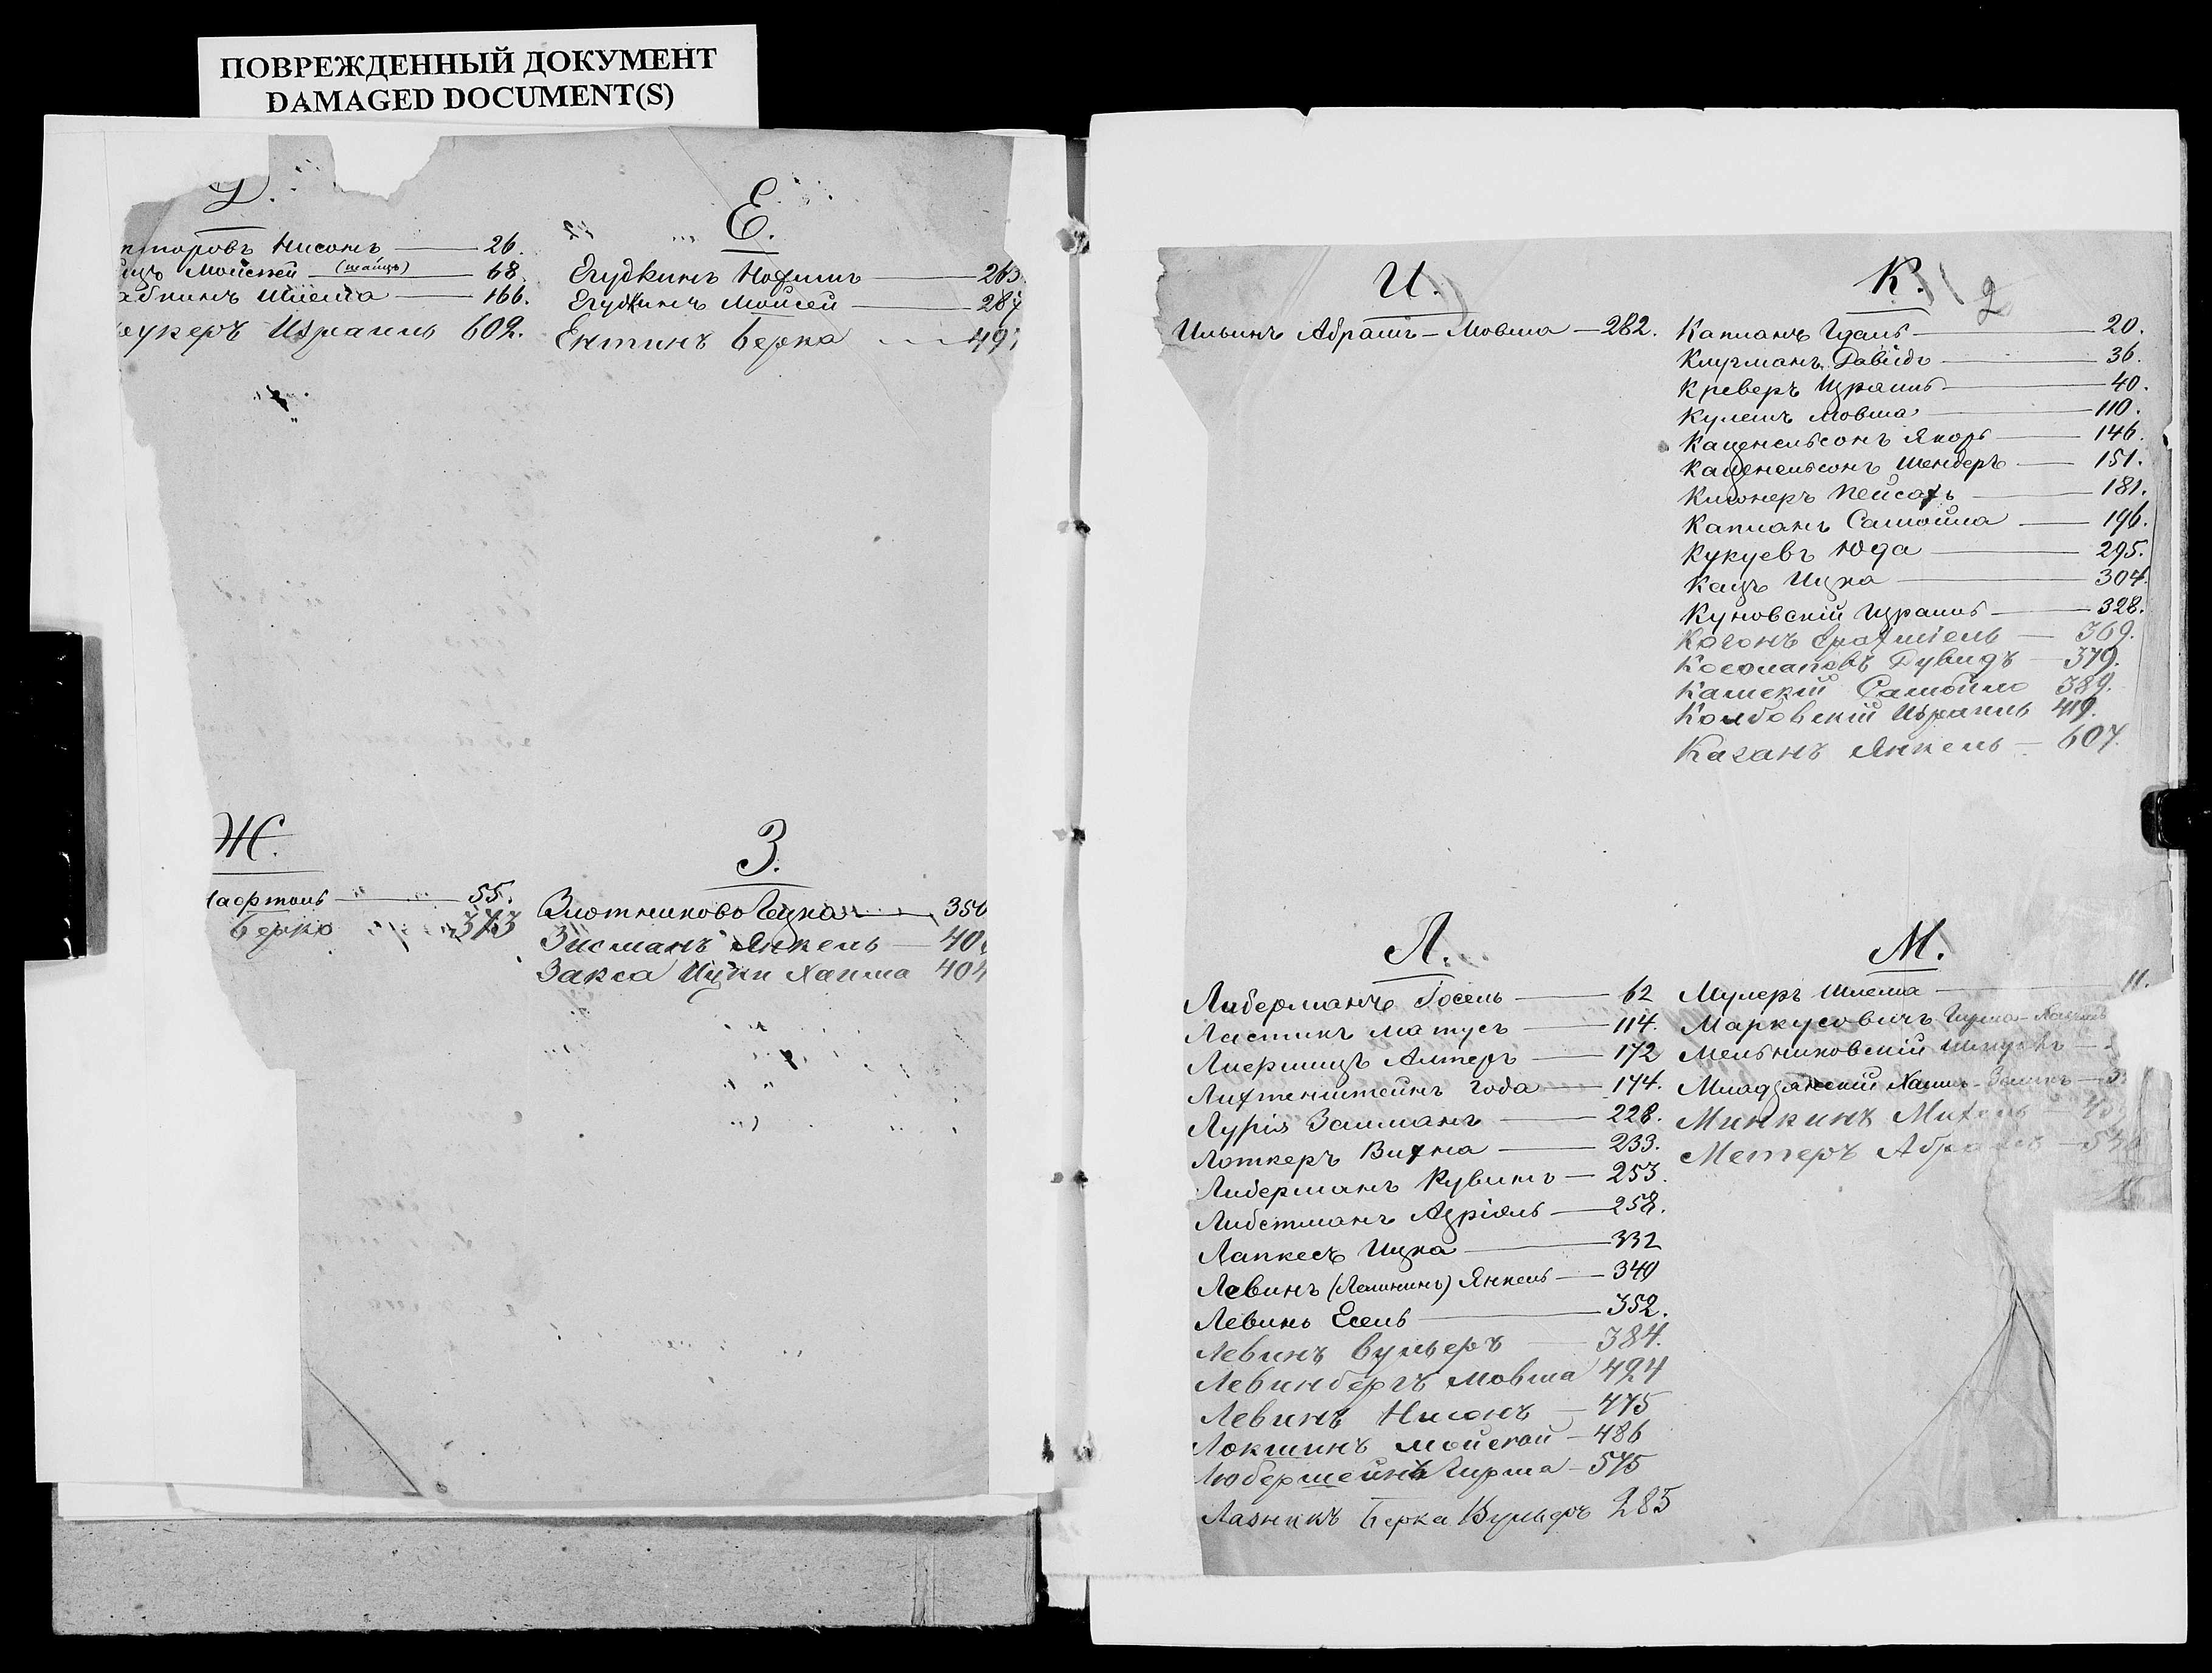 ПОВРЕЖДЕННЫЙ ДОКУМЕНТ
DAMAGED DOCUMENT(S)
Д.
Нисонъ 26.
Мойсей (шаицъ) 68
Шлема 166.
Израиль 602.
Е.
Егудкинъ Нохимъ 263
Егудкинъ Мойсей 287
Ентинъ Берка 497
Ж.
55.
Берко 373
З.
Злотниково Ицка 350
Зисманъ Янкель 40
Закса Ицки Хаима 404
И.
Ильинъ Абрамъ-Мовша 282.
К. 2
Капланъ Гдаль 20.
Клугманъ Давидъ 36.
Креверъ Израиль 40.
Кулешъ Мовша 110.
Каценельсонъ Якоръ 146.
Каценельсонъ Шендеръ 151.
Клюнеръ Пейсахъ 181.
Капланъ Самойла 196.
Кукуевъ Юда 295.
Кацъ Ицка 304.
Куновскій Израиль 328.
Кагонъ 369.
Косолаповъ Дувидъ 379.
Камскій Самойло 389.
Колбовскій Израиль 419.
Каганъ Янкель 607.
Л.
Либерманъ Іосель 62
Ластикъ Матусъ 114.
Лифшицъ Алтеръ 172
Лихтенштейнъ Года 174.
Лурія Залманъ 228.
Лоткеръ Вихна 233.
Либерманъ Рувинъ 253.
Либстманъ Азріель 258.
Лапкесъ Ицка 332
Левинъ (Лешнинъ) Янкель 340
Левинъ Есель 352.
Левинъ Вульфъ 384.
Левинбергъ Мовша 494
Левинъ Нисонъ 475
Локшинъ Мойсей 486
Люберштейнъ Гирша 575
Лазникъ Берка Вульфъ 285
М.
Мулеръ Шлема 11.
Маркусовичъ Гирша-Хаимъ
Мельниковскій
Мнадзянскій Хаимъ
Минкинъ Михель
Метеръ Абрамъ